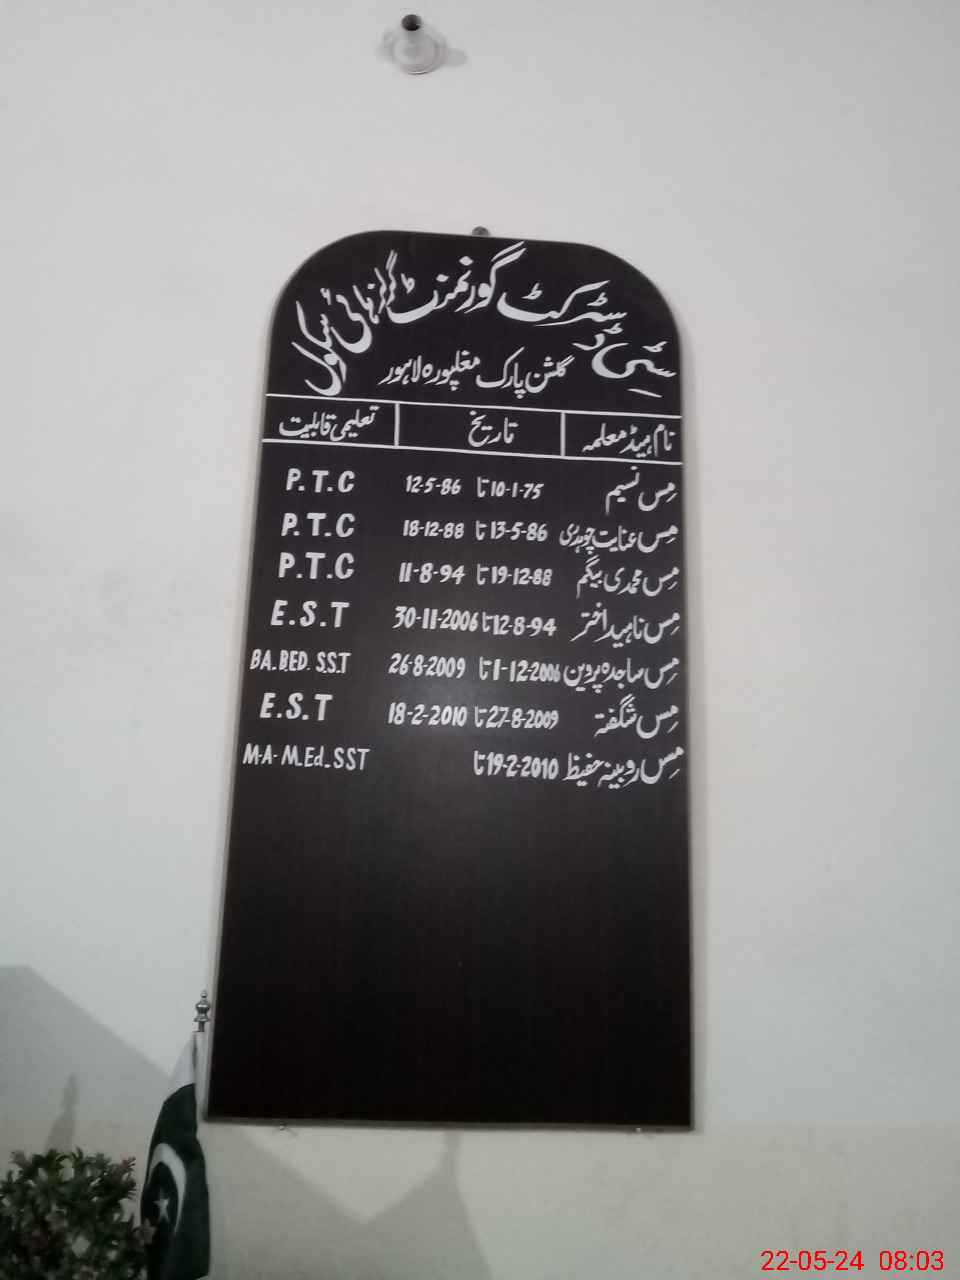 سٹی ڈسٹرکٹ گورنمنٹ گرلز ہائی سکول
گلشن پارک مغلپورہ لاہور
نام ہیڈ معلمہ تاریخ تعلیمی قابلیت
مس نسیم 10-1-75 تا 12-5-86 P.T.C
مس عنایت چوہدری 13-5-86 تا 18-12-88 P.T.C
مس محمدی بیگم 19-12-88 تا 11-8-94 P.T.C
مس ناہید اختر 12-8-94 تا 30-11-2006 E.S.T
مس ساجدہ پروین 1-12-2006 تا 26-8-2009 BA.B.ED. S.S.T
مس شگفتہ 27-8-2009 تا 18-2-2010 E.S.T
مس روبینہ حفیظ 19-2-2010 تا M-A- M.Ed.SST
22-05-24 08:03